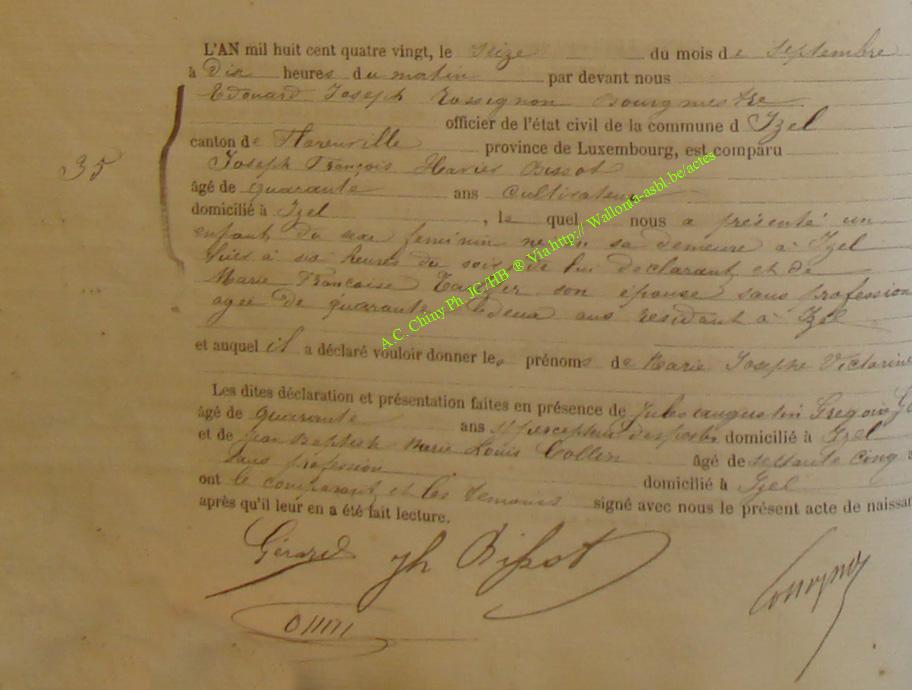 L'AN mil huit cent quatre vingt, le Seize du mois de Septembre
à Dix heures du matin par devant nous
Edouard Joseph Rossignon Bourgmestre
officier de l'état civil de la commune d Izel
canton de Florenville province de Luxembourg, est comparu
35
Joseph François Xavier Bissot
âgé de quarante ans cultivateur
domicilié à Izel , le quel nous a présenté un
enfant du sexe feminin né en sa demeure à Izel
hier à six heures du soir de lui declarant et de
Marie Francoise son épouse sans profession
agée de quarante deux ans residant à Izel
et auquel il a déclaré vouloir donner les prénoms de Marie Josephe Victorine
Les dites déclaration et présentation faites en présence de Jules Augustin Gregoire
âgé de quarante ans percepteur des postes domicilié à Izel
et de Jean Baptiste Marie Louis Collin âgé de septante cinq
sans profession domicilié à Izel
ont le comparant et les temoins signé avec nous le présent acte de naissan
après qu'il leur en a été fait lecture.
Gérard Jh Bissot
A.C. Chiny Ph. JC/HB ® Via http:// Wallonia-asbl.be/actes